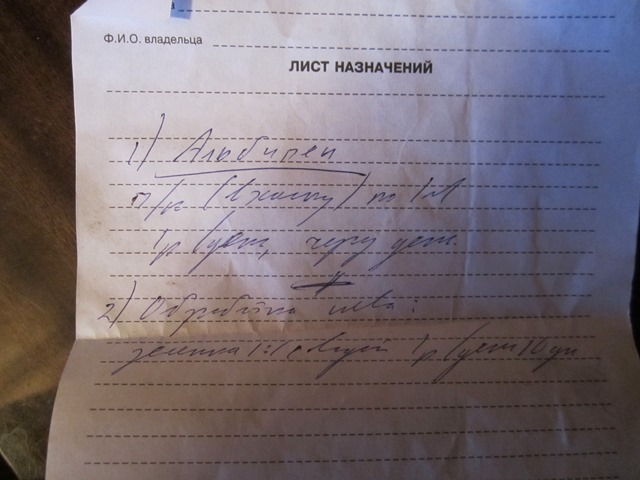 Ф.И.О. владельца
ЛИСТ НАЗНАЧЕНИЙ
1) Альбипен
п/к (в холку) по 1 мл
1 р/день, через день
2) Обработка шва:
зеленка 1:1 с водой 1 р/день 10 дн